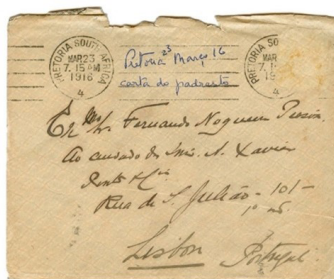 PRETORIA SOUTH AFRICA
MAR 23
7. 15 AM
1916
4
Pretoria 23 Março 16
carta do padrasto
PRETORIA SOUTH
MAR
7. 15
19
4
Fernando Nogueira Pessôa
Ao cuidado do A. Xavier
Pinto & Cia
Rua de S. Julião - 101 -
Lisbon
Portugal